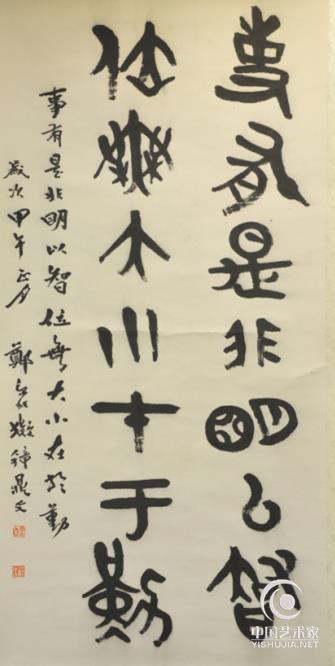 事有是非明以智
位無大小在于勤
事有是非明以智位無大小在於勤
歲次甲午正月 鄭 擬鐘鼎文
中国艺术家
YISHUJIA.COM